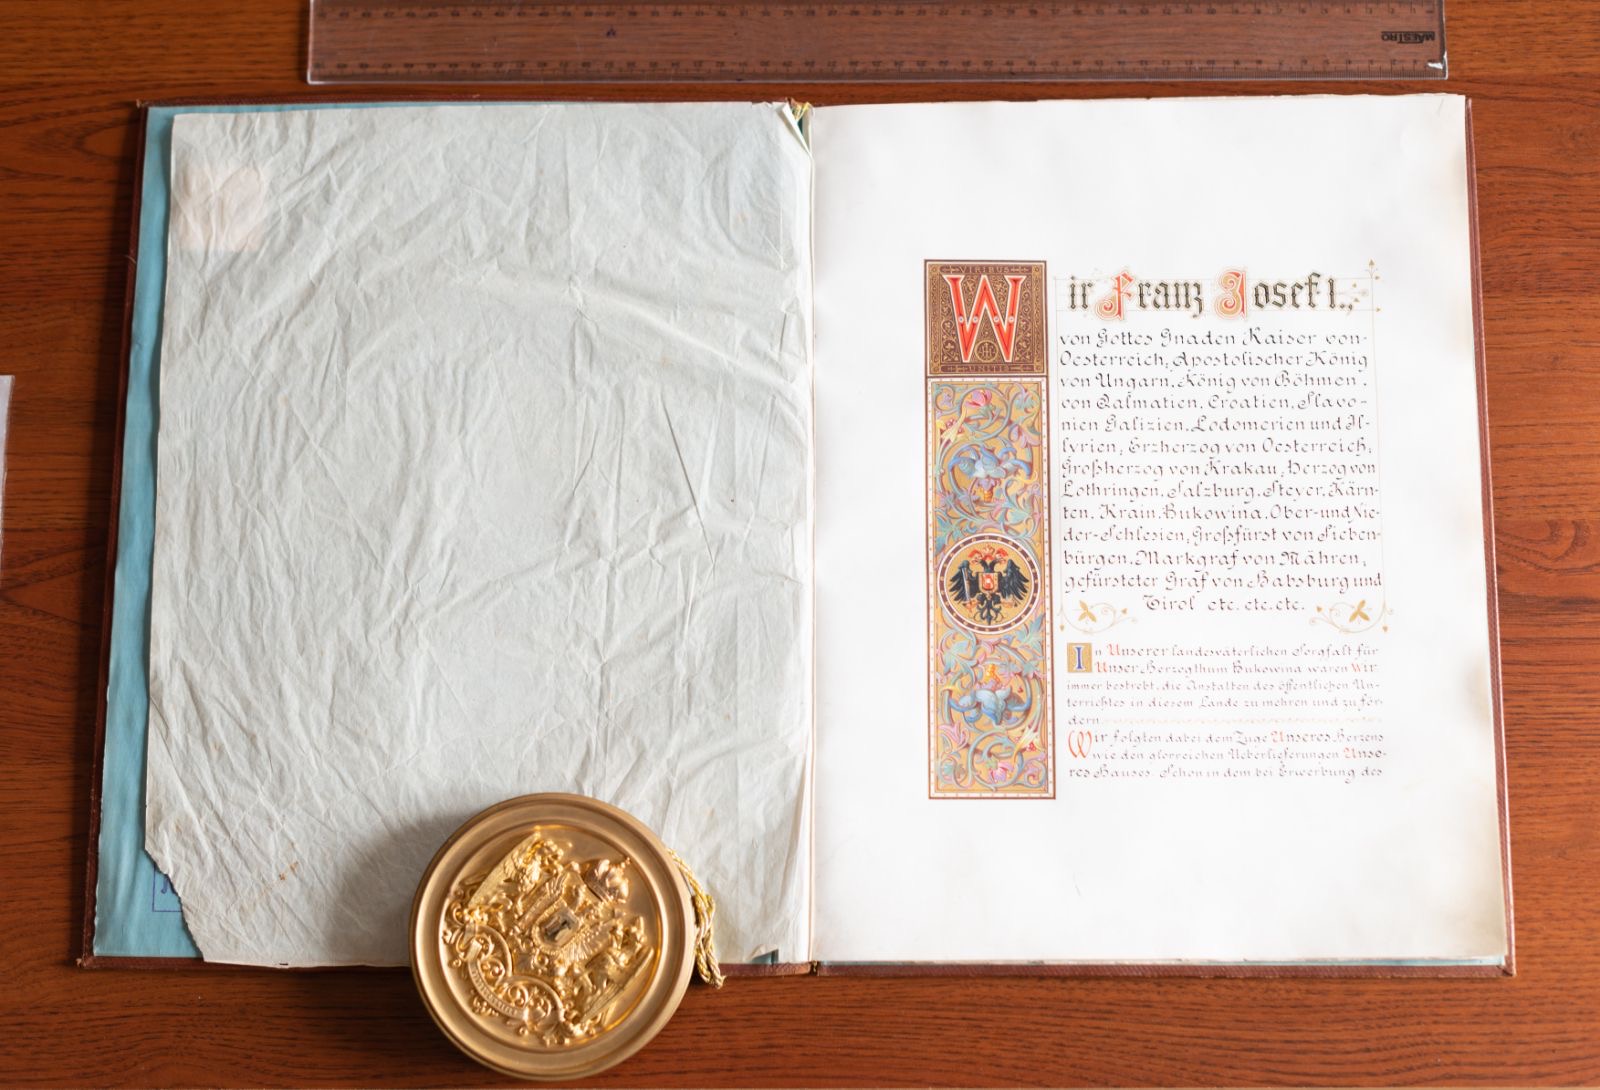 MAESTRO
VIRIBUS
UNITIS
Wir Franz Josef I.,
von Gottes Gnaden Kaiser von
Oesterreich, Apostolischer König
von Ungarn, König von Böhmen,
von Dalmatien, Croatien, Slavo-
nien Galizien, Lodomerien und Il-
lyrien, Erzherzog von Oesterreich,
Großherzog von Krakau, Herzog von
Lothringen, Salzburg, Steyer, Kärn-
ten, Krain, Bukowina, Ober- und Nie-
der-Schlesien, Großfürst von Sieben-
bürgen, Markgraf von Mähren,
gefürsteter Graf von Habsburg und
Tirol etc. etc. etc.
In Unserer landesväterlichen Sorgfalt für
Unser Herzogthum Bukowina waren Wir
immer bestrebt, die Anstalten des öffentlichen Un-
terrichtes in diesem Lande zu mehren und zu för-
dern.
Wir folgten dabei dem Zuge Unseres Herzens
wie den glorreichen Ueberlieferungen Unse-
res Hauses. Schon in dem bei Erwerbung des